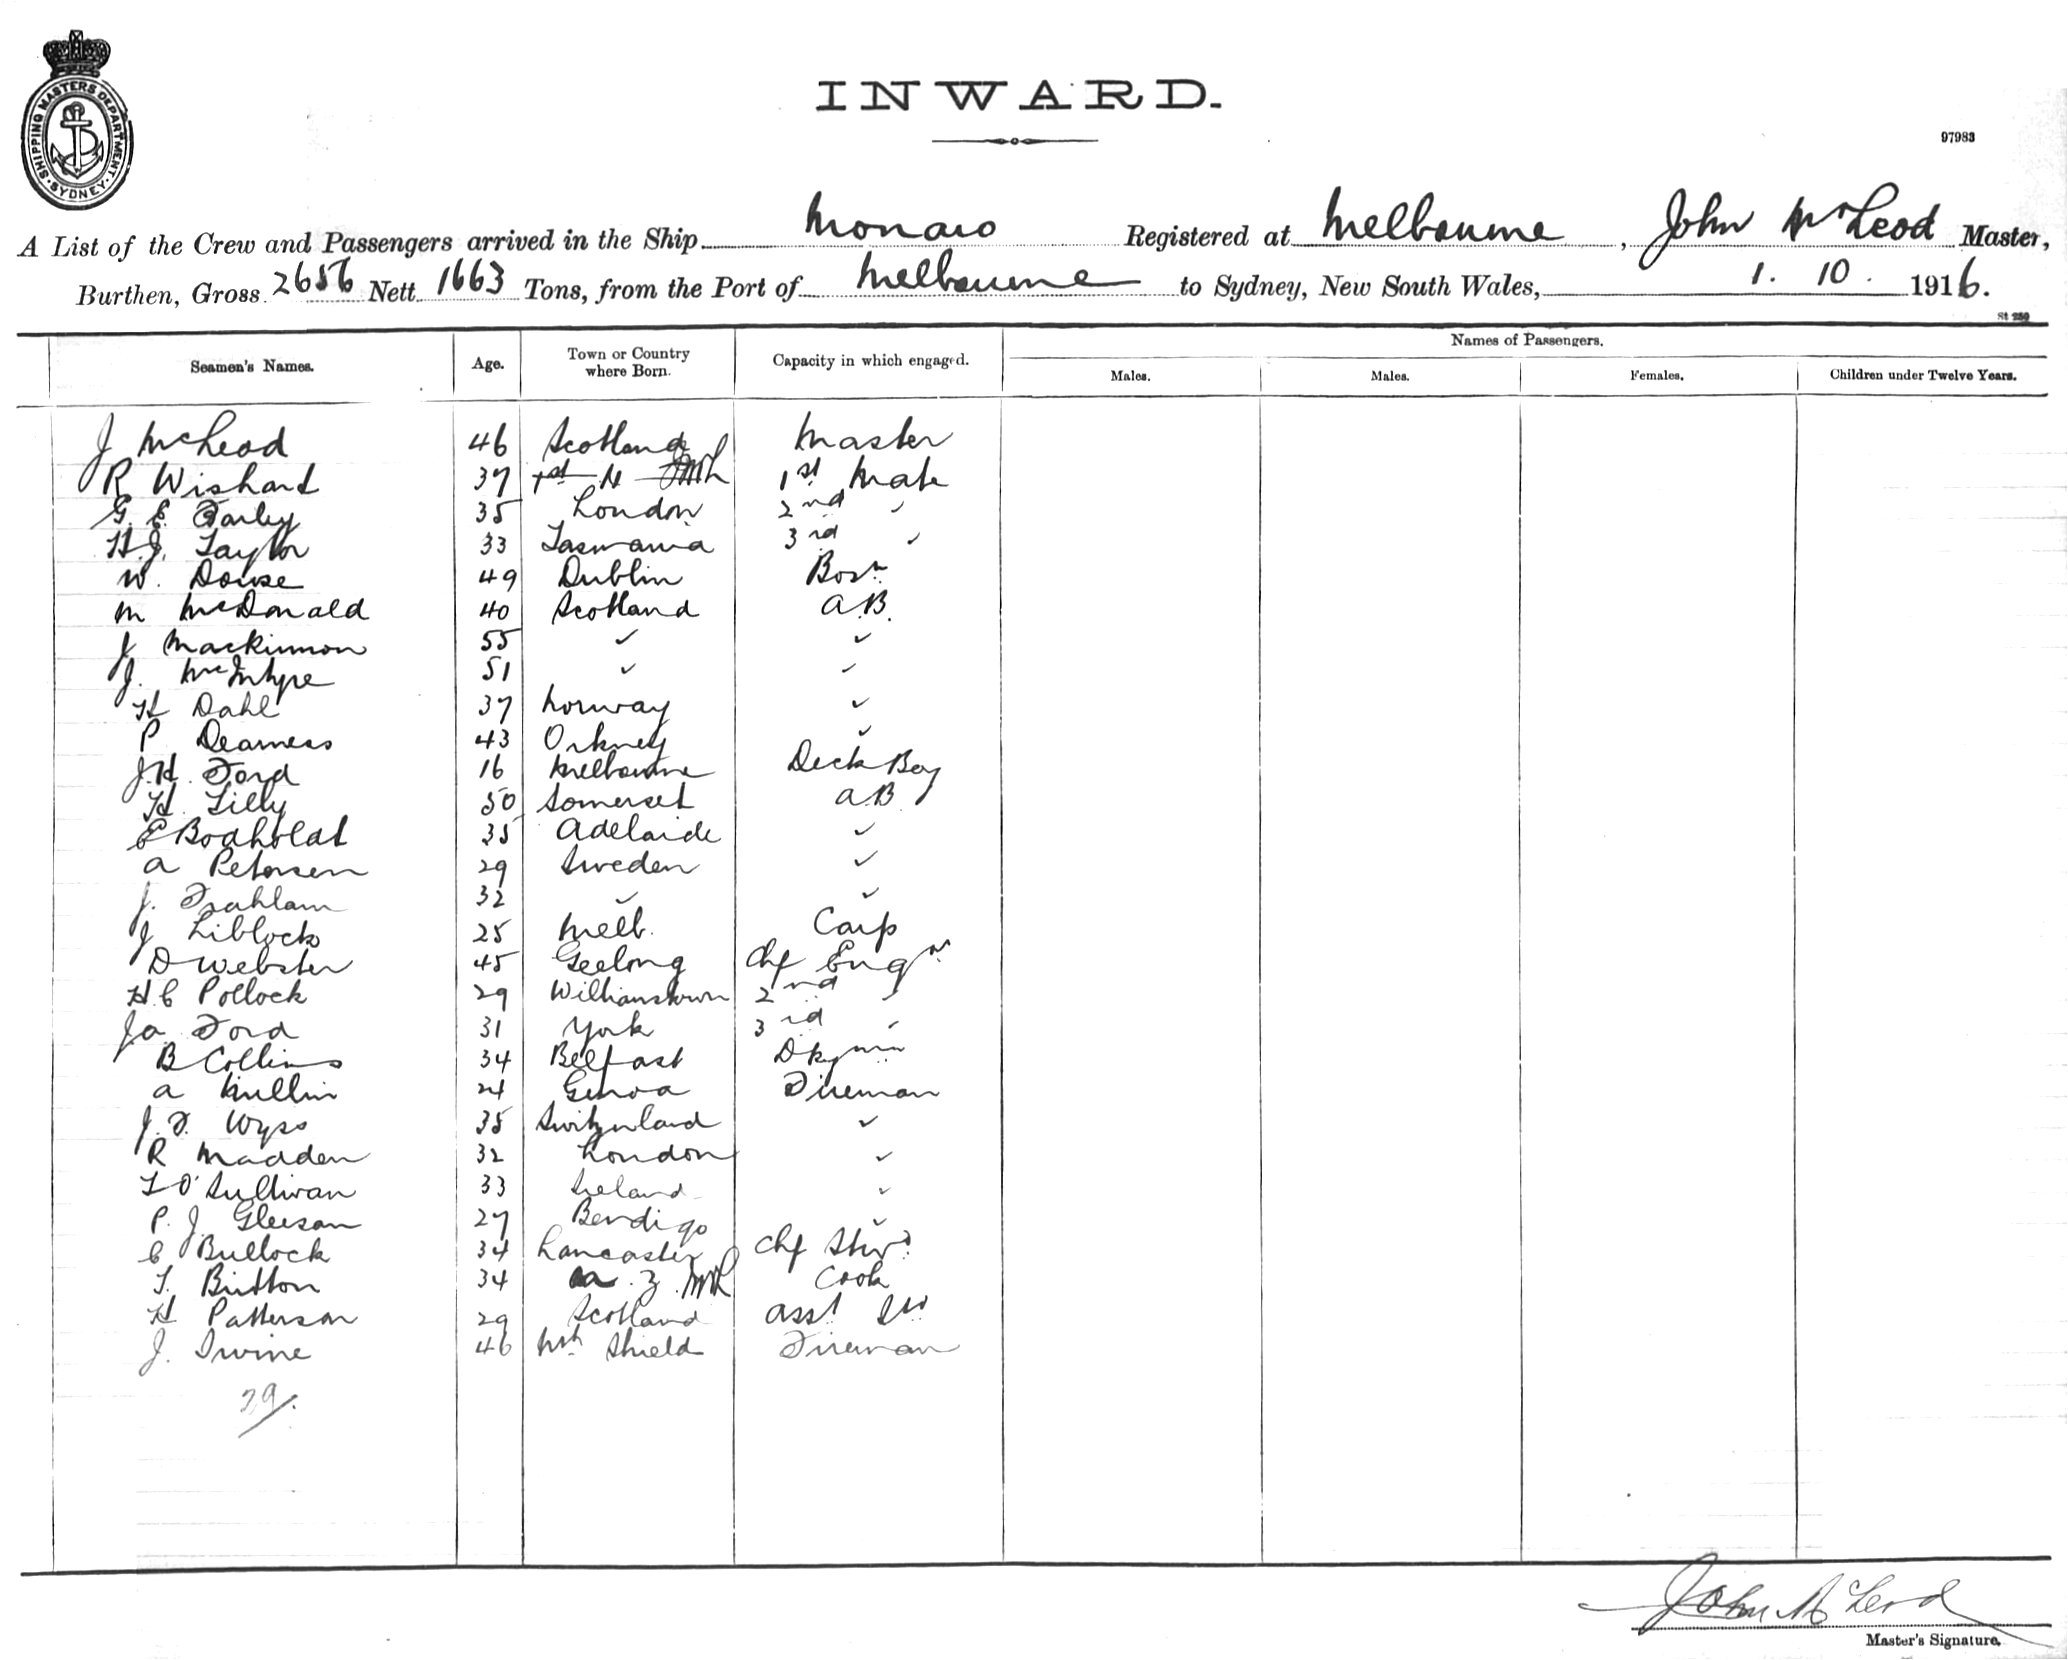 SHIPPING MASTERS DEPARTMENT. SYDNEY.
INWARD.
97983
A List of the Crew and Passengers arrived in the Ship Monaro Registered at Melbourne, John McLeod Master,
Burthen, Gross 2656 Nett 1663 Tons, from the Port of Melbourne to Sydney, New South Wales, 1. 10. 1916.
St 259
Seamen's Names. Age. Town or Country where Born. Capacity in which engaged. Names of Passengers.
Males. Males. Females. Children under Twelve Years.
J McLeod 46 Scotland Master
R Wishart 37 1st Mate
G. E. Farley 35 London 2nd "
H. J. Taylor 33 Tasmania 3rd "
W. Dowse 49 Dublin Bosn
M McDonald 40 Scotland A.B.
J Mackinnon 55 " "
J. McIntyre 51 " "
H Dahl 37 Norway "
P Dearness 43 Orkney "
J. H. Ford 16 Melbourne Deck Boy
H. Lilly 50 Somerset A.B
E Bodholdt 35 Adelaide "
A Petersen 29 Sweden "
J. 32 " "
J Liblock 25 Melb. Carp
D Webster 45 Geelong Chf Engr
H. C Pollock 29 Williamstown 2nd "
Ja Ford 31 York 3rd "
B Collins 34 Belfast Dkymn
A Mullin 24 Genoa Fireman
J. F. Wyss 35 Switzerland "
R Madden 32 London "
T O'Sullivan 33 Ireland "
P. J. Gleesan 27 Bendigo "
C Bullock 34 Lancaster Chf Stwd
T. Britton 34 Cook
H Patterson 29 Scotland Asst
J. Irvine 46 Nth Shield Fireman
29/.
John McLeod
Master's Signature.